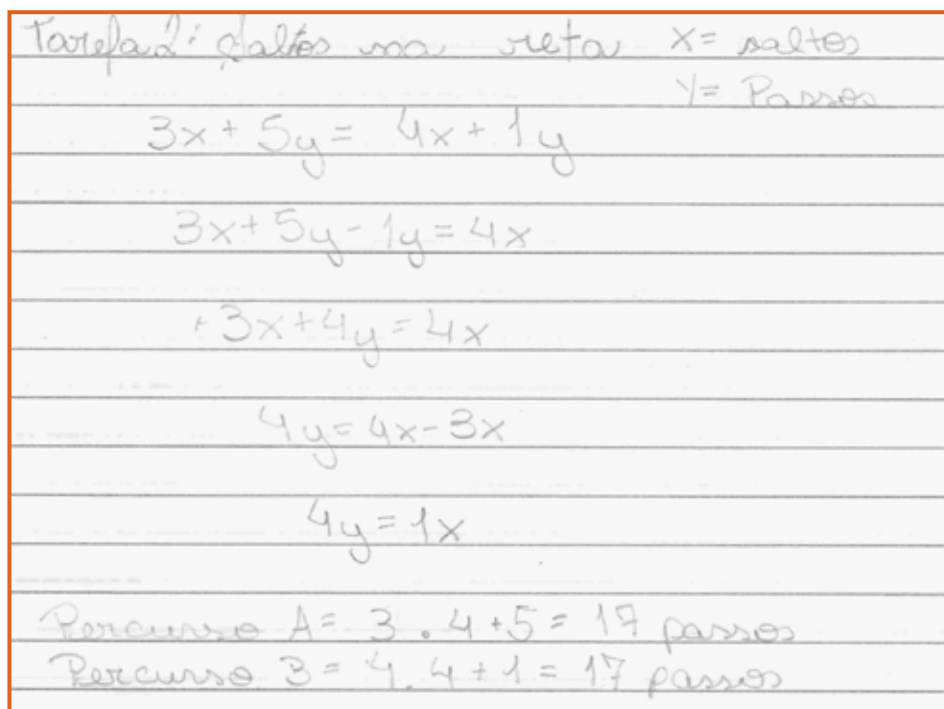 Tarefa 2: Saltos na reta x = saltos
y = Passos
3x + 5y = 4x + 1y
3x + 5y - 1y = 4x
3x + 4y = 4x
4y = 4x - 3x
4y = 1x
Percurso A = 3 . 4 + 5 = 17 passos
Percurso B = 4 . 4 + 1 = 17 passos